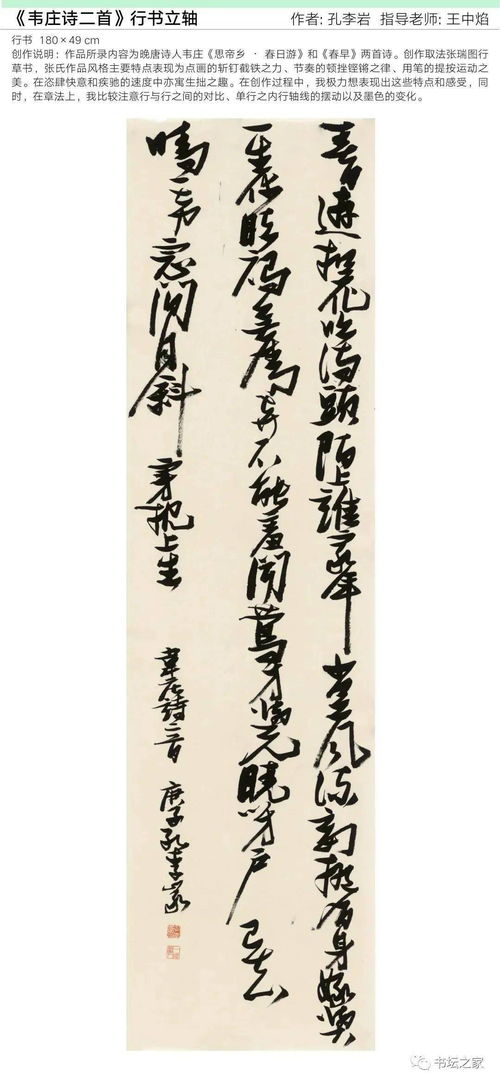 《韦庄诗二首》行书立轴
作者: 孔李岩 指导老师: 王中焰
行书 180×49 cm
创作说明: 作品所录内容为晚唐诗人韦庄《思帝乡 · 春日游》和《春早》两首诗。创作取法张瑞图行
草书，张氏作品风格主要特点表现为点画的斩钉截铁之力、节奏的顿挫铿锵之律、用笔的提按运动之
美。在恣肆快意和疾驰的速度中亦寓生拙之趣。在创作过程中，我极力想表现出这些特点和感受，同
时，在章法上，我比较注意行与行之间的对比、单行之内行轴线的摆动以及墨色的变化。
春日遊杏花吹滿頭陌上誰家年少足風流妾擬將身嫁與
一生休縱被無情棄不能羞聞鶯才覺曉閉戶已知
晴一帶窗間月斜穿枕上生
韋莊詩二首 庚子孔李岩
书坛之家